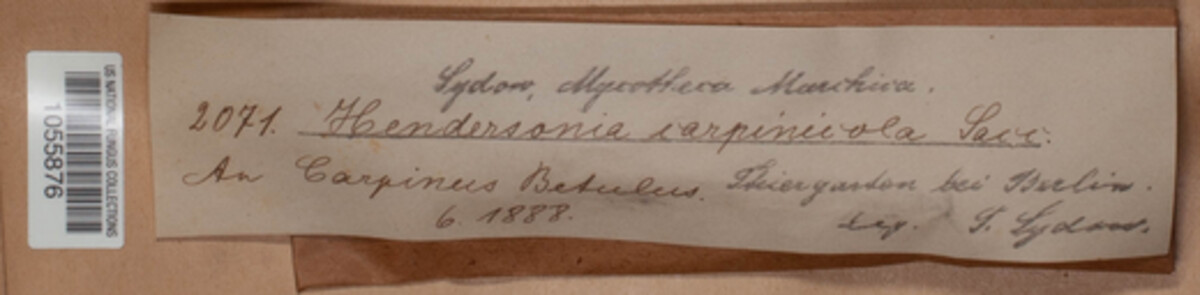 US NATIONAL FUNGUS COLLECTIONS
1055876
Sydow, Mycotheca Marchica.
2071. Hendersonia carpinicola Sacc.
An Carpinus Betulus. Thiergarten bei Berlin.
6. 1888.
leg. P. Sydow.